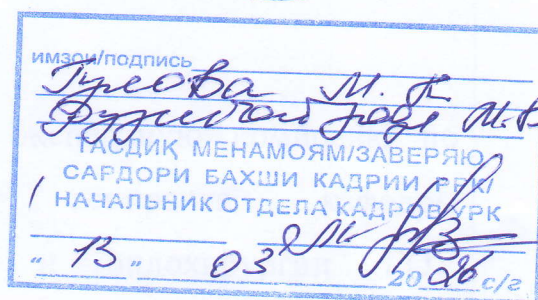 имзои/подпись
Гулова М. К
М.
ТАСДИҚ МЕНАМОЯМ/ЗАВЕРЯЮ
САРДОРИ БАХШИ КАДРИИ РРК/
НАЧАЛЬНИК ОТДЕЛА КАДРОВ УРК
"13" 03 2026 с/г